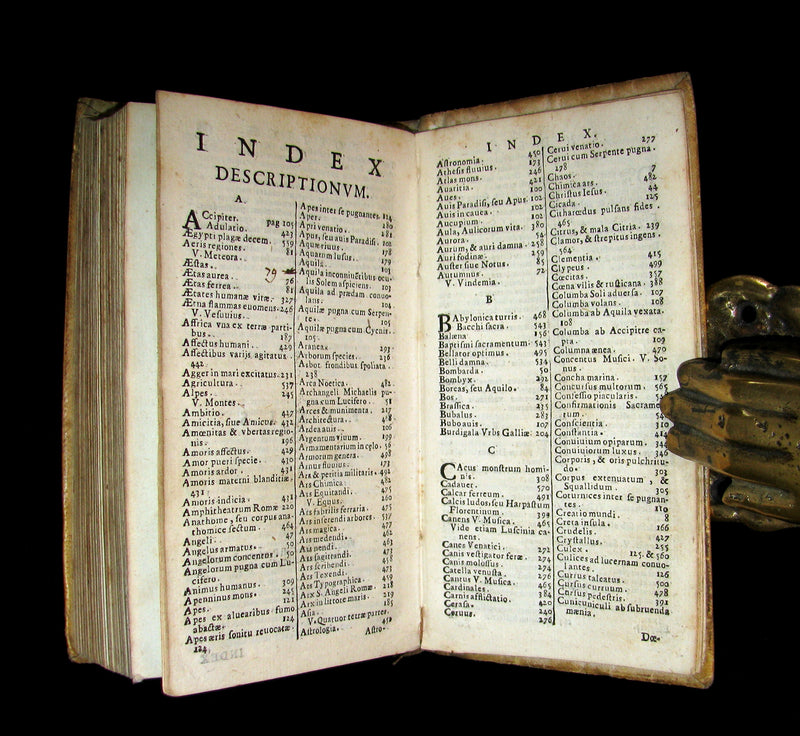 INDEX
DESCRIPTIONVM.
A.
ACcipiter. pag 105
Adulatio. 423
Ægypti plagæ decem. 559
Aeris regiones. 81
V. Meteora.
Æstas.
Ætas aurea. 79
Ætas ferrea. 76
Ætates humanæ vitæ. 327
Ætna flammas euomens. 246
V. Vesuuius.
Affrica vna ex terræ parti-
bus. 187
Affectus humani. 429
Affectibus varijs agitatus.
442
Agger in mari excitatus. 231
Agricultura. 537
Alpes. 245
V. Montes.
Ambitio. 427
Amicitia, siue Amicus. 432
Amœnitas & vbertas regio-
nis. 196
Amoris affectus. 429
Amor pueri specie. 430
Amoris ardor. 431
Amoris materni blanditiæ.
431
Amoris indicia. 431
Amphitheatrum Romæ 220
Anathome, seu corpus ana-
thomice sectum. 464
Angeli. 47
Angelus armatus. 50
Angelorum concentus. 50
Angelorum pugna cum Lu-
cifero.
Animus humanus. 309
Apenninus mons. 245
Apes. 121
Apes ex aluearibus fumo
abactæ. 124
Apes æris sonitu reuocatæ.
124
Apes inter se pugnantes. 124
Aper. 180
Apri venatio. 281
Apus, seu auis Paradisi. 102
Aquæ riuus. 178
Aquarum lusus. 179
Aquila. 103
Aquila inconniuentibus ocu-
lis Solem aspiciens. 103
Aquila ad prædam conuo-
lans. 104
Aquilæ pugna cum Serpen-
te. 105
Aquilæ pugna cum Cycnis.
105
Aranea. 291
Arborum species. 236
Arbor frondibus spoliata.
238
Arca Noetica. 482
Archangeli Michaelis pu-
gna cum Lucifero. 51
Arces & munimenta. 217
Architectura. 418
Ardea auis. 106
Argentum viuum. 199
Armamentarium in celo. 56
Armorum genera. 498
Arnus fluuius. 173
Ars & peritia militaris. 492
Ars Chimica. 482
Ars Equitandi. 475
V. Equus. 260
Ars fabrilis ferraria. 475
Ars inserendi arbores. 537
Ars magica. 477
Ars medendi. 462
Ars nendi. 463
Ars sagittandi. 473
Ars scribendi. 458
Ars Texendi. 473
Ars Typographica. 459
Arx S. Angeli Romæ. 218
Arx in littore maris. 219
Asia. 185
V. Quatuor terræ partes.
Astrologia. 450
Astro-
INDEX.
Astronomia. 450
Athesis fluuius. 173
Atlas mons. 246
Auaritia. 421
Aues. 100
Auis Paradisi, seu Apus. 102
Auis in cauea. 102
Aucupium. 102
Aula, Aulicorum vita. 380
Aurora. 54
Aurum, & auri damna. 258
Auri fodinæ. 259
Auster siue Notus. 85
Autumnus. 72
V. Vindemia.
B
BAbylonica turris. 468
Bacchi sacra. 543
Balæna 156
Baptismi sacramentum. 543
Bellator optimus. 495
Belli damna. 514
Bombarda. 50
Bombyx. 292
Boreas, seu Aquilo. 84
Bos. 271
Brassica. 235
Bubalus. 283
Bubo auis. 107
Burdigala Vrbs Galliæ. 204
C
CAcus monstrum homi-
nis. 308
Cadauer. 570
Calcar ferreum. 491
Calcis ludos, seu Harpastum
Florentinum. 394
Canens V. Musica. 465
Vide etiam Luscinia ca-
nens.
Canes Venatici. 272
Canis vestigator feræ. 274
Canis molossus. 274
Catella venusta. 276
Cantus V. Musica. 465
Cardinales. 465
Carnis afflictatio. 384
Cerasa. 420
Ceruus. 240
276
Cerui venatio. 277
Cerui cum Serpente pugna.
278
Chaos. 7
Chimica ars. 482
Christus Iesus. 44
Cicada. 125
Citharœdus pulsans fides.
465
Citrus, & mala Citria. 239
Clamor, & strepitus ingens.
564
Clementia. 415
Clypeus. 499
Cœcitas. 357
Cœna vilis & rusticana. 388
Columba Soli aduersa. 107
Columba volans. 108
Columba ab Aquila vexata.
108
Columba ab Accipitre ca-
pta. 109
Columna ænea. 470
Concentus Musici. V. bo-
nus.
Concha marina. 157
Concursus multorum. 565
Confessio piacularis.
Confirmationis Sacrame
tum.
Conscientia. 310
Constantia. 414
Conuiuium opiparum 344
Conuiuiorum luxus. 346
Corporis, & oris pulchritu-
do. 303
Corpus extenuatum, &
Squallidum. 305
Coturnices inter se pugnan-
tes. 110
Creatio mundi. 8
Creta insula. 166
Crudelis.
Crystallus. 427
Culex. 255
Culices ad lucernam conuo- 125. & 560
lantes.
Currus talcatus. 126
Cursus curruum. 502
Cursus pedestris. 478
Cuniculiculi ab subruenda 391
mœnia.
Dœ-